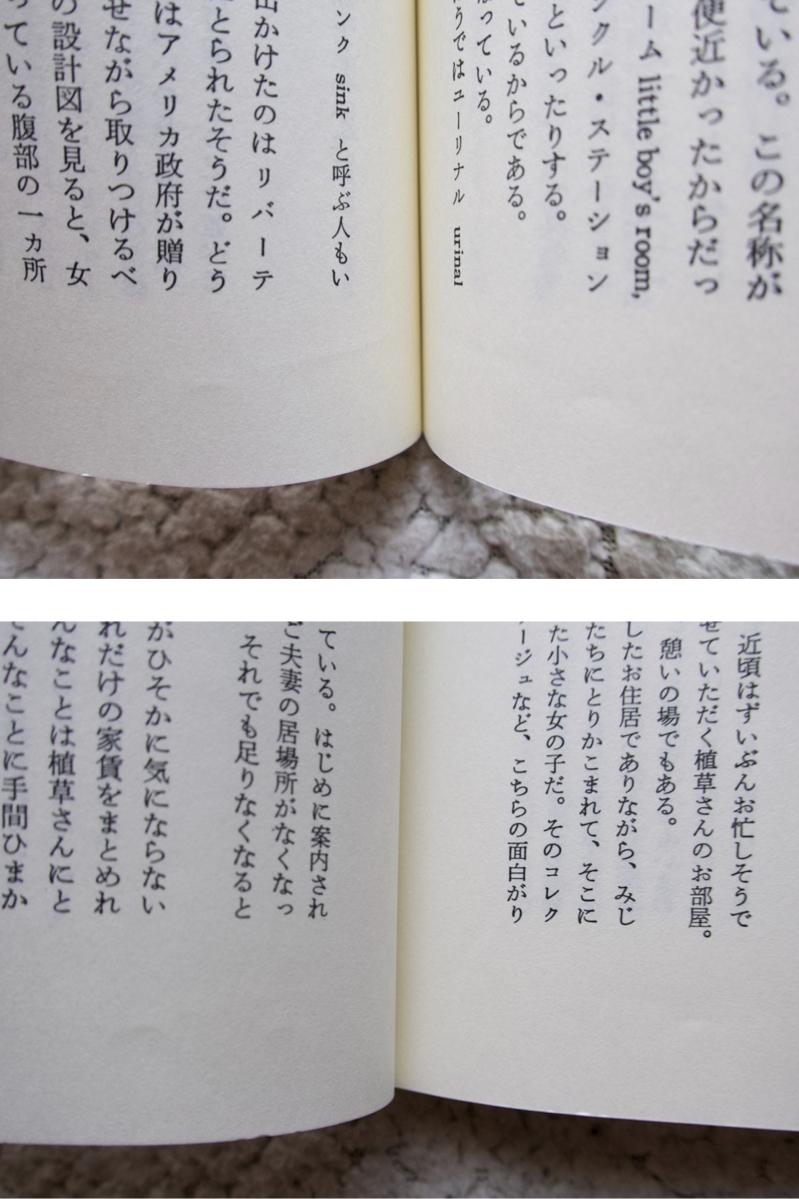 ている。この名称が
便近かったからだっ
ーム little boy's room,
ンクル・ステーション
といったりする。
ているからである。
うではユーリナル urinal
っている。
ンク sink と呼ぶ人もい
出かけたのはリバーテ
とられたそうだ。どう
はアメリカ政府が贈り
せながら取りつけるべ
の設計図を見ると、女
っている腹部の一ヵ所
近頃はずいぶんお忙しそうで
せていただく植草さんのお部屋。
憩いの場でもある。
したお住居でありながら、みじ
たちにとりかこまれて、そこに
た小さな女の子だ。そのコレク
ージュなど、こちらの面白がり
ている。はじめに案内され
ご夫妻の居場所がなくなっ
それでも足りなくなると
がひそかに気にならない
れだけの家賃をまとめれ
んなことは植草さんにと
そんなことに手間ひまか